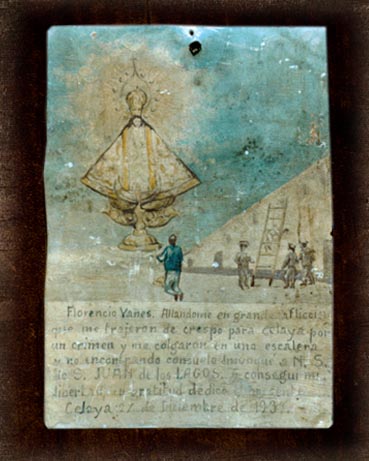 Florencio Yañes. Allandome en grande aflicci
que me trajeron de crespo para Celaya por
un crimen y me colgaron en una escalera
y no encontrando consuelo invoque a N. S.
de S. JUAN de los LAGOS. y consegui mi
libertad en gratitud dedico el presente
Celaya 27 de Diciembre de 1932.